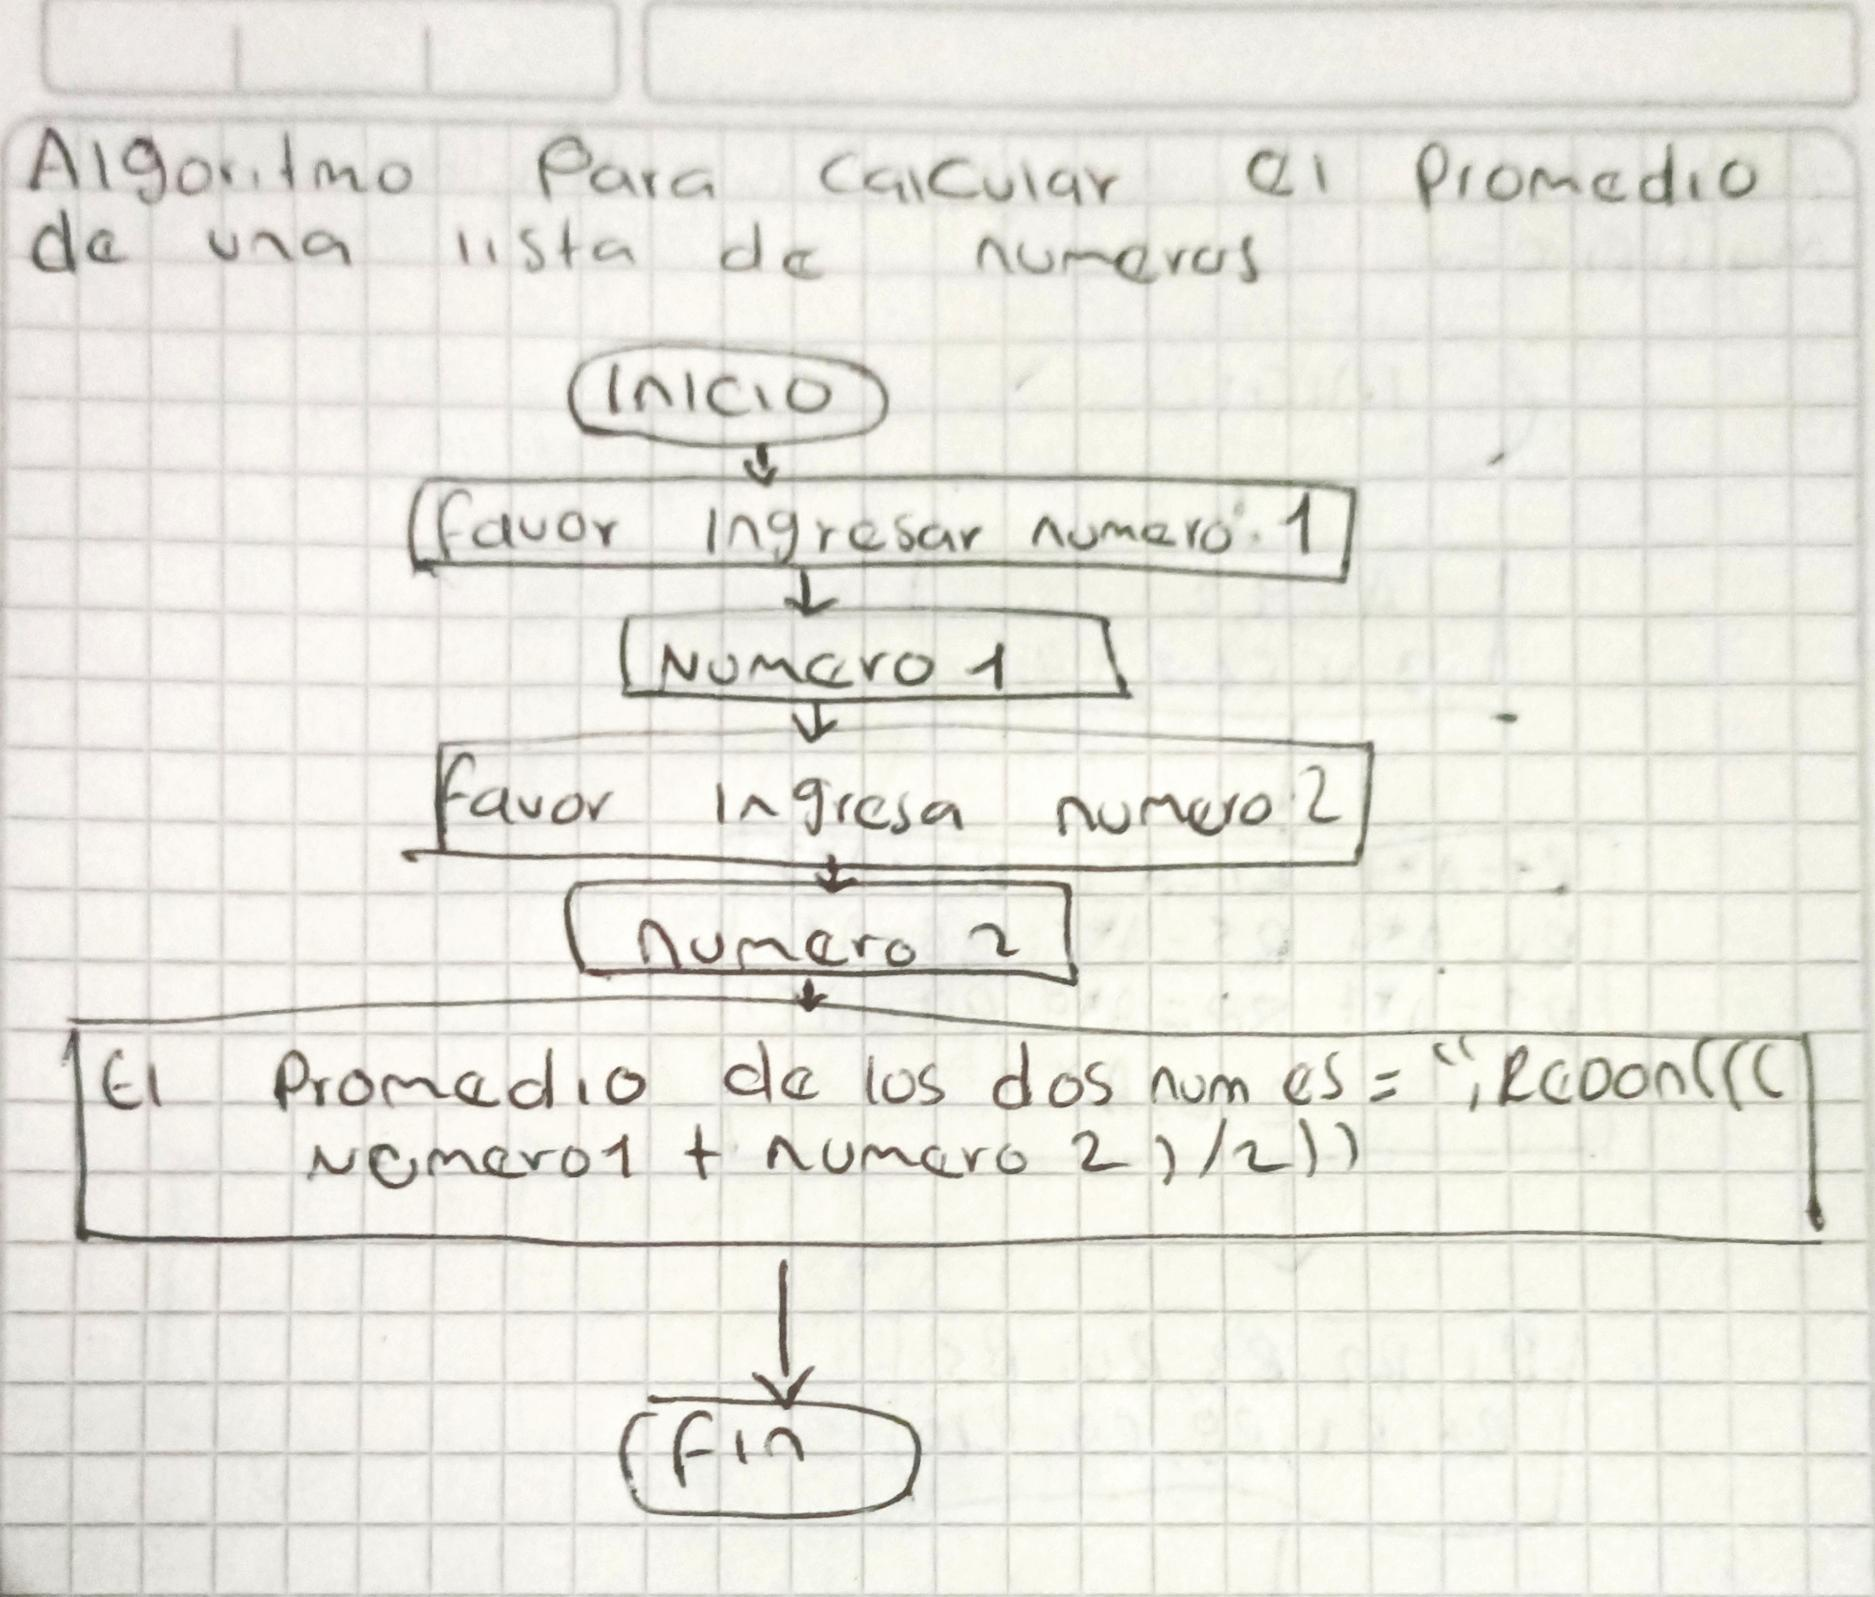 Algoritmo Para calcular el Promedio
de una lista de numeros
Inicio
favor Ingresar numero: 1
Numero 1
favor Ingresa numero 2
numero 2
El Promedio de los dos num es = ", Redon(((
Numero1 + numero 2)/2))
fin